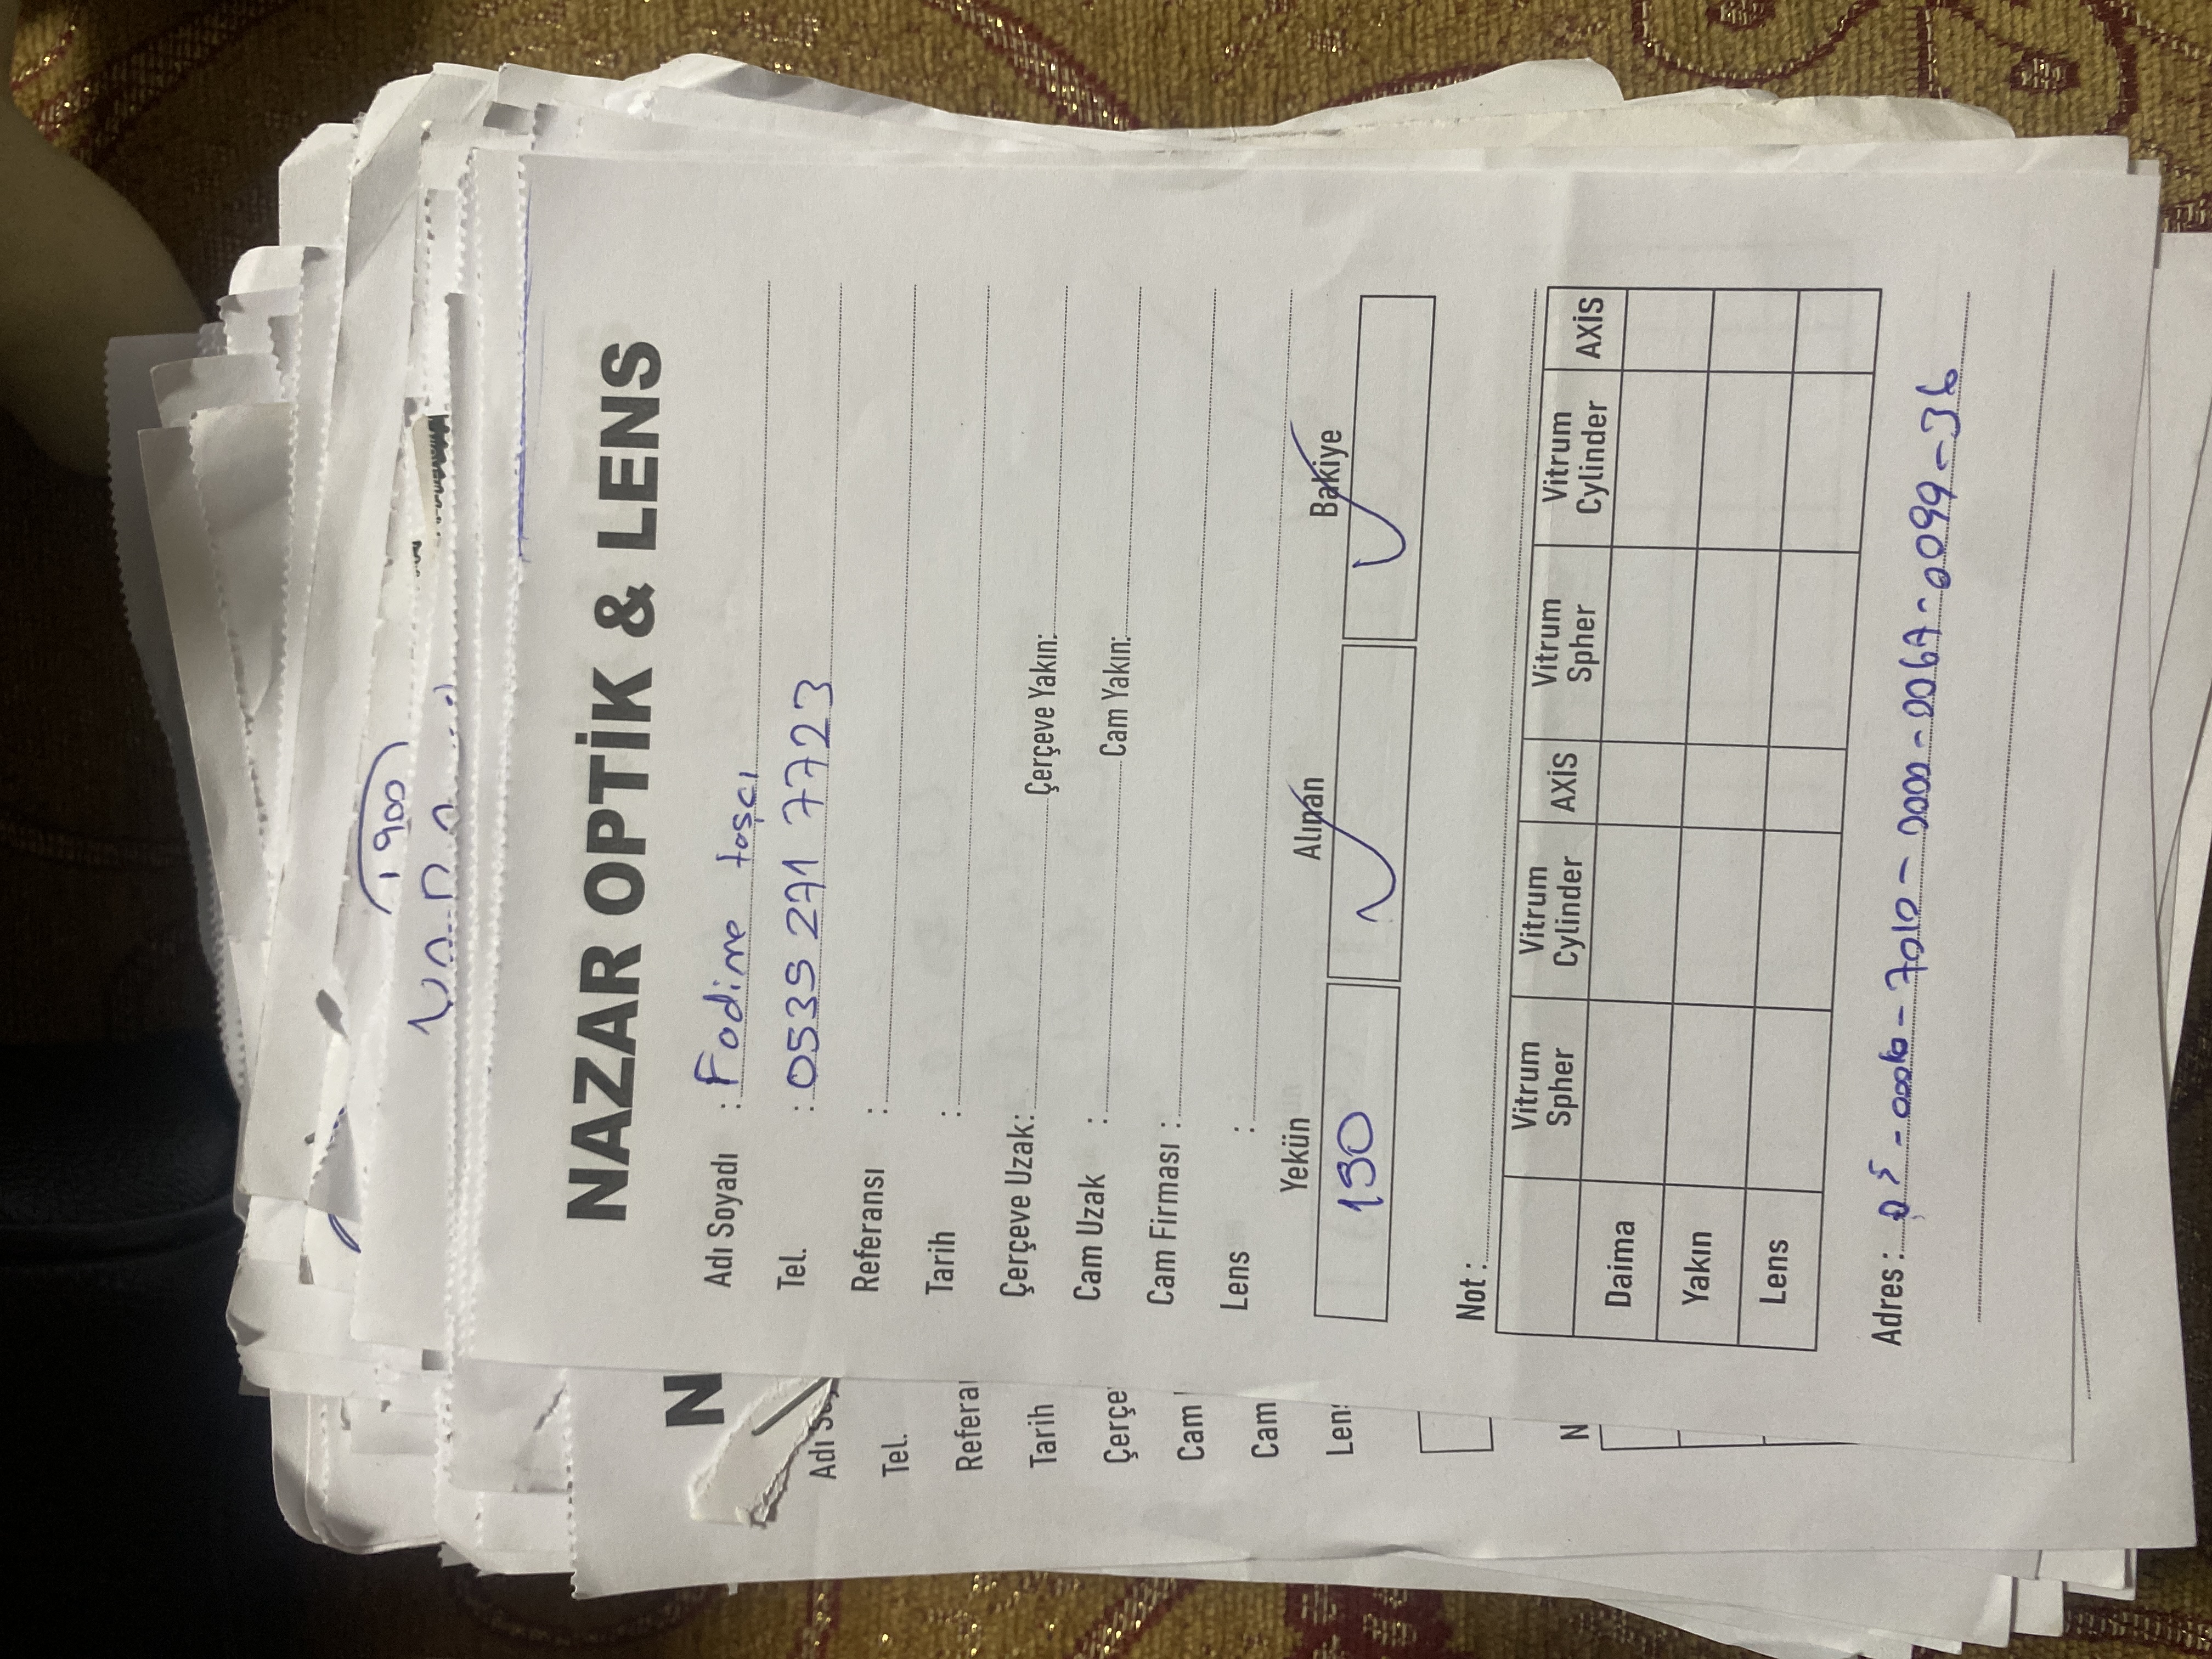 1900
NAZAR OPTİK & LENS
Adı Soyadı : Fadime taşcı
Tel. : 0535 271 7723
Referansı :
Tarih :
Çerçeve Uzak: Çerçeve Yakın:
Cam Uzak : Cam Yakın:
Cam Firması :
Lens :
Yekün Alınan Bakiye
150 ✓ ✓
Not :
Vitrum Spher Vitrum Cylinder AXİS Vitrum Spher Vitrum Cylinder AXİS
Daima
Yakın
Lens
Adres : 7010 - 0000 - 0067 - 0099 - 36
N
Adı
Tel.
Refera
Tarih
Çerçe
Cam
Cam
Lens
N